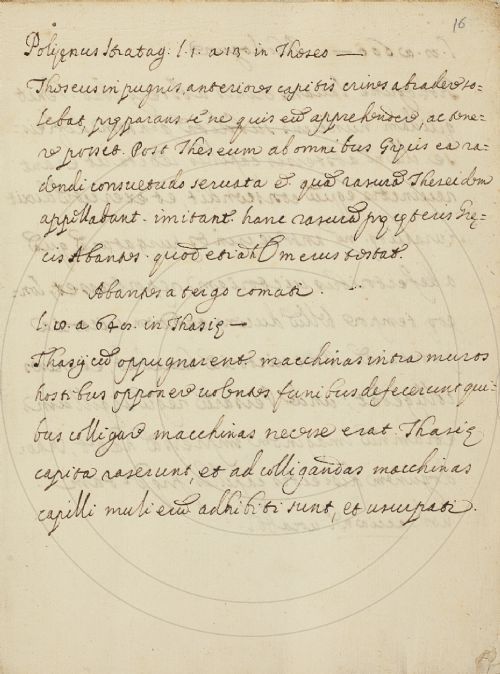 16
Polięnus Stratag. l. 1. a 13 in Theseo —
Theseus in pugnis, anteriores capitis crines abradere so-
lebat, pręparans sē ne quis eū apprehendere, ac tene-
re posset. Post Theseum ab omnibus Gręcis ea ra-
dendi consuetudo seruata ē. quā rasurā Theseidem
appellabant. imitant hanc rasurā prę cęteris Grę-
cis Abantes. quod etiā Omerus testat.
Abantes a tergo comati.
in Thasię —
Thasij cū oppugnarent. macchinas intra muros
hostibus opponere uolentes funibus defecerunt qui-
bus colligare macchinas necesse erat. Thasię
capita raserunt, et ad colligandas macchinas
capilli mulierū adhibiti sunt, et usurpati.